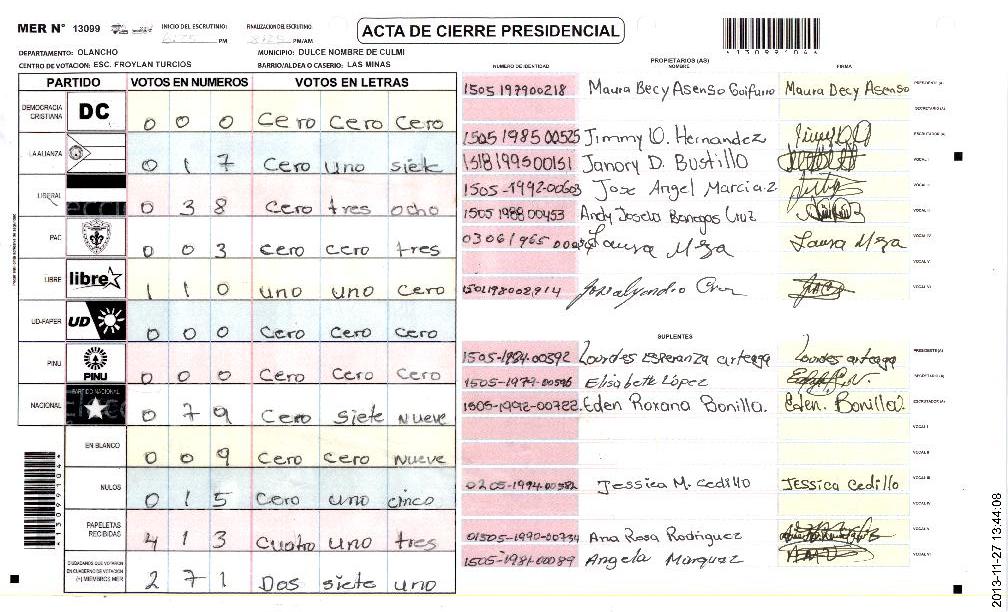 MER N° 13099
INICIO DEL ESCRUTINIO:
PM
FINALIZACION DEL ESCRUTINIO:
PM/AM
ACTA DE CIERRE PRESIDENCIAL
*1309910 4*
DEPARTAMENTO: OLANCHO
MUNICIPIO: DULCE NOMBRE DE CULMI
CENTRO DE VOTACION: ESC. FROYLAN TURCIOS
BARRIO/ALDEA O CASERIO: LAS MINAS
PARTIDO VOTOS EN NUMEROS VOTOS EN LETRAS
DEMOCRACIA CRISTIANA DC 0 0 0 Cero Cero Cero
LA ALIANZA 0 1 7 Cero uno siete
LIBERAL 0 3 8 Cero tres ocho
PAC 0 0 3 Cero cero tres
LIBRE libre 1 1 0 uno uno cero
UD-FAPER UD 0 0 0 Cero Cero cero
PINU PINU 0 0 0 Cero Cero Cero
NACIONAL PARTIDO NACIONAL 0 7 9 Cero siete nueve
EN BLANCO 0 0 9 Cero Cero nueve
NULOS 0 1 5 Cero uno cinco
PAPELETAS RECIBIDAS 4 1 3 Cuatro uno tres
CIUDADANOS QUE VOTARON EN CUADERNO DE VOTACION (+) MIEMBROS MER 2 7 1 Dos siete uno
PROPIETARIOS (AS)
NUMERO DE IDENTIDAD NOMBRE FIRMA
1505 197900218 Maura Becy Asenso Maura Decy Asenso PRESIDENTE (A)
SECRETARIO (A)
1505 1985 00525 Jimmy O. Hernandez ESCRUTADOR (A)
1518 1995 00151 Janory D. Bustillo VOCAL I
1505-1992-00603 Jose Angel Marcia VOCAL II
1505 1988 00453 Andy Joselo Banegas Cruz VOCAL III
Laura Meza Laura Meza VOCAL IV
VOCAL V
VOCAL VI
SUPLENTES
1505-1984-00392 Lourdes Esperanza arteaga Lourdes arteaga PRESIDENTE (A)
1505-1979-00596 Elisabeth López SECRETARIO (A)
1505-1992-00722. Eden Roxana Bonilla. Eden. Bonilla ESCRUTADOR (A)
VOCAL I
VOCAL II
0205-1994-00582 Jessica M. Cedillo Jessica Cedillo VOCAL III
VOCAL IV
01505-1990-00734 Ana Rosa Rodriguez VOCAL V
1505-1981-00089 Angela Marquez VOCAL VI
2013-11-27 13:44:08